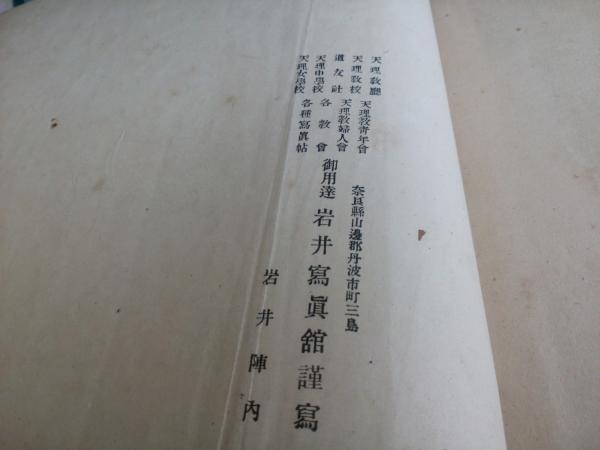 天理敎廳
天理敎校
道友社
天理中學校
天理女學校
天理敎靑年會
天理敎婦人會
各敎會
各種寫眞帖
御用達
奈良縣山邊郡丹波市町三島
岩井寫眞館謹寫
岩井陣內